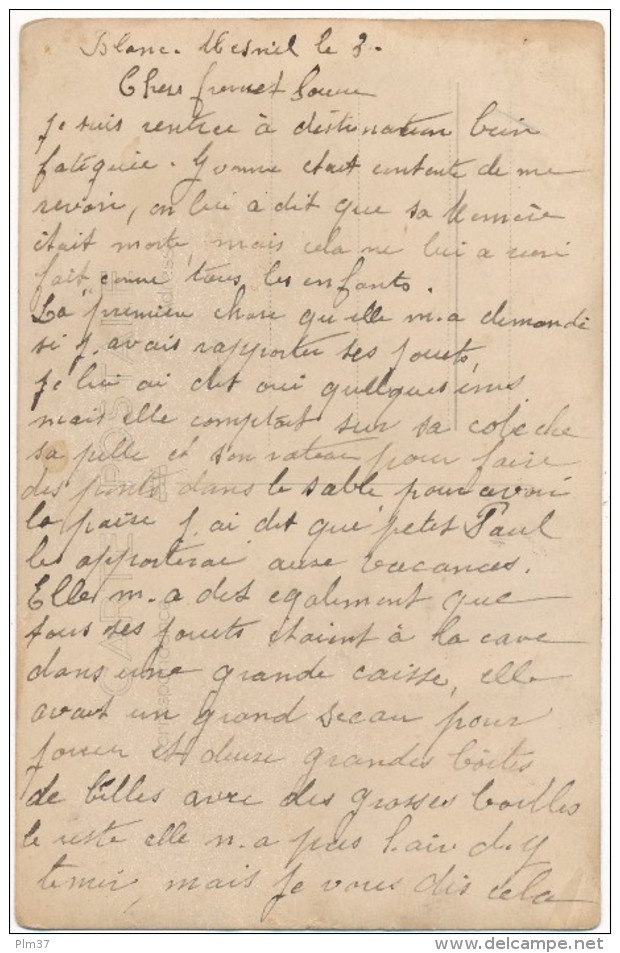 Blanc-Mesnil le 3.
Chers frere et Soeur
Je suis rentrée à destination bien
fatiguée. Yvonne etait contente de me
revoir, on lui a dit que sa Memère
était morte, mais cela ne lui a rien
fait, come tous les enfants.
La première chose qu'elle m.a demandé
si j.avais rapporter ses jouets,
Je lui ai dit oui quelques uns
mais elle comptait sur sa
sa pelle et son rateau pour faire
des dans le sable pour avoir
la paix j.ai dit que petit Paul
les apporterai aux vacances.
Elle m.a dit egalement que
tous ses jouets étaient à la cave
dans une grande caisse, elle
avait un grand seau pour
jouer et deux grandes boites
de billes avec des grosses boilles
le reste elle n.a pas l.air d.y
tenir, mais je vous dis cela
CARTE POSTALE
Correspondance
Adresse
Plm37
www.delcampe.net